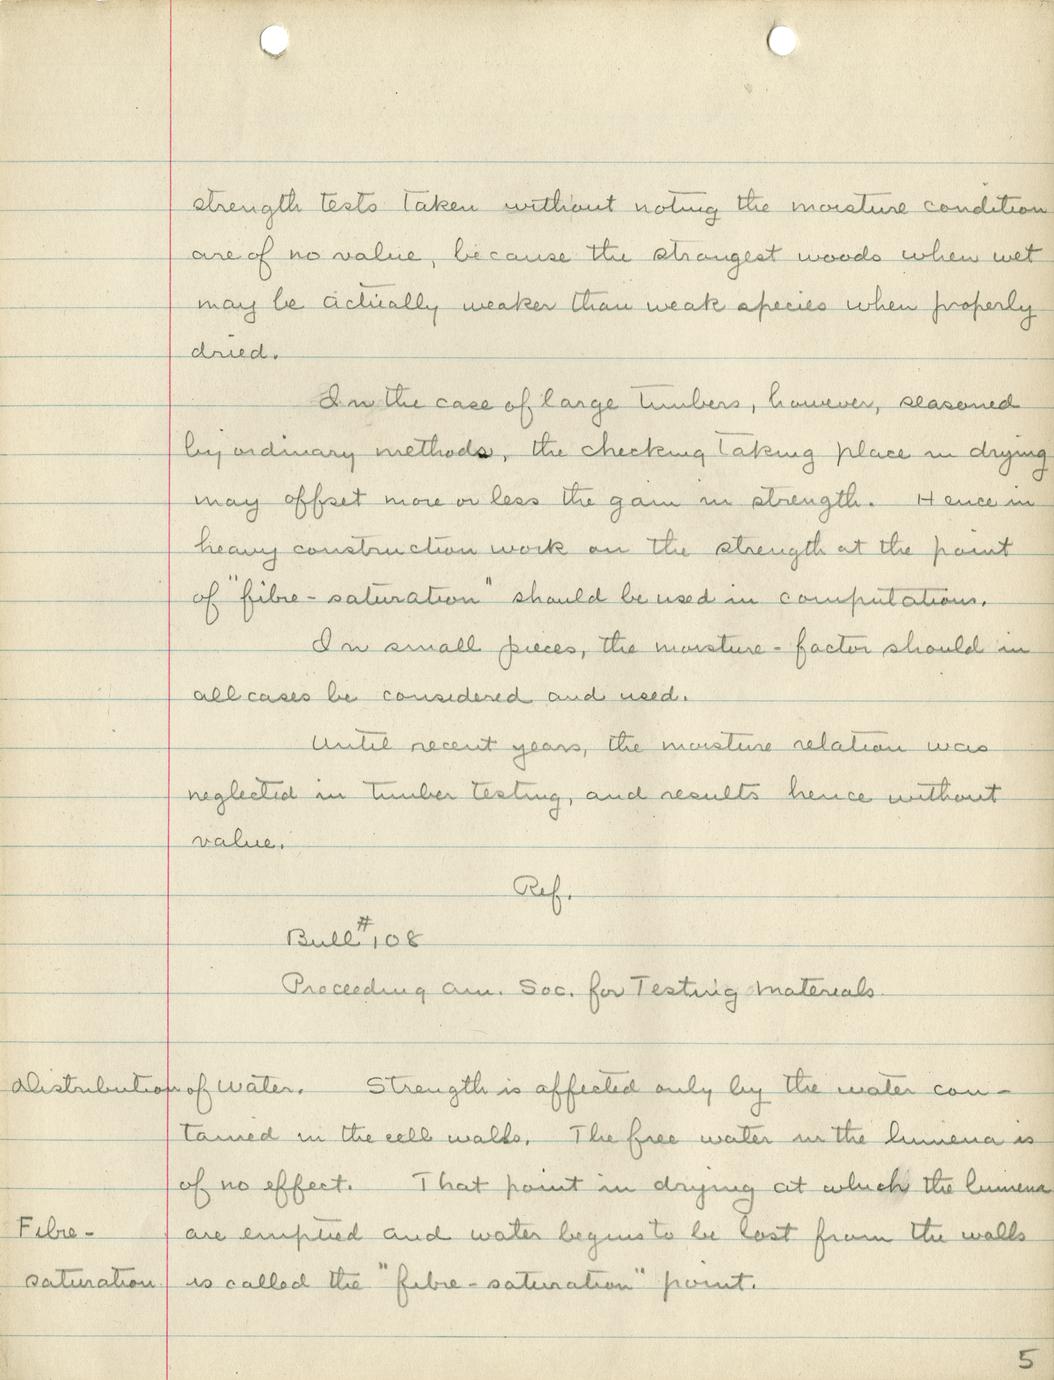 strength tests taken without noting the moisture condition
are of no value, because the strongest woods when wet
may be actually weaker than weak species when properly
dried.
In the case of large timbers, however, seasoned
by ordinary methods, the checking taking place in drying
may offset more or less the gain in strength. Hence in
heavy construction work on the strength at the point
of "fibre-saturation" should be used in computations.
In small pieces, the moisture-factor should in
all cases be considered and used.
Until recent years, the moisture relation was
neglected in timber testing, and results hence without
value.
Ref.
Bull #108
Proceeding Am. Soc. for Testing Materials
Distribution of Water. Strength is affected only by the water con-
tained in the cell walls. The free water in the lumena is
of no effect. That point in drying at which the lumena
Fibre- are emptied and water begins to be lost from the walls
saturation is called the "fibre-saturation" point.
5